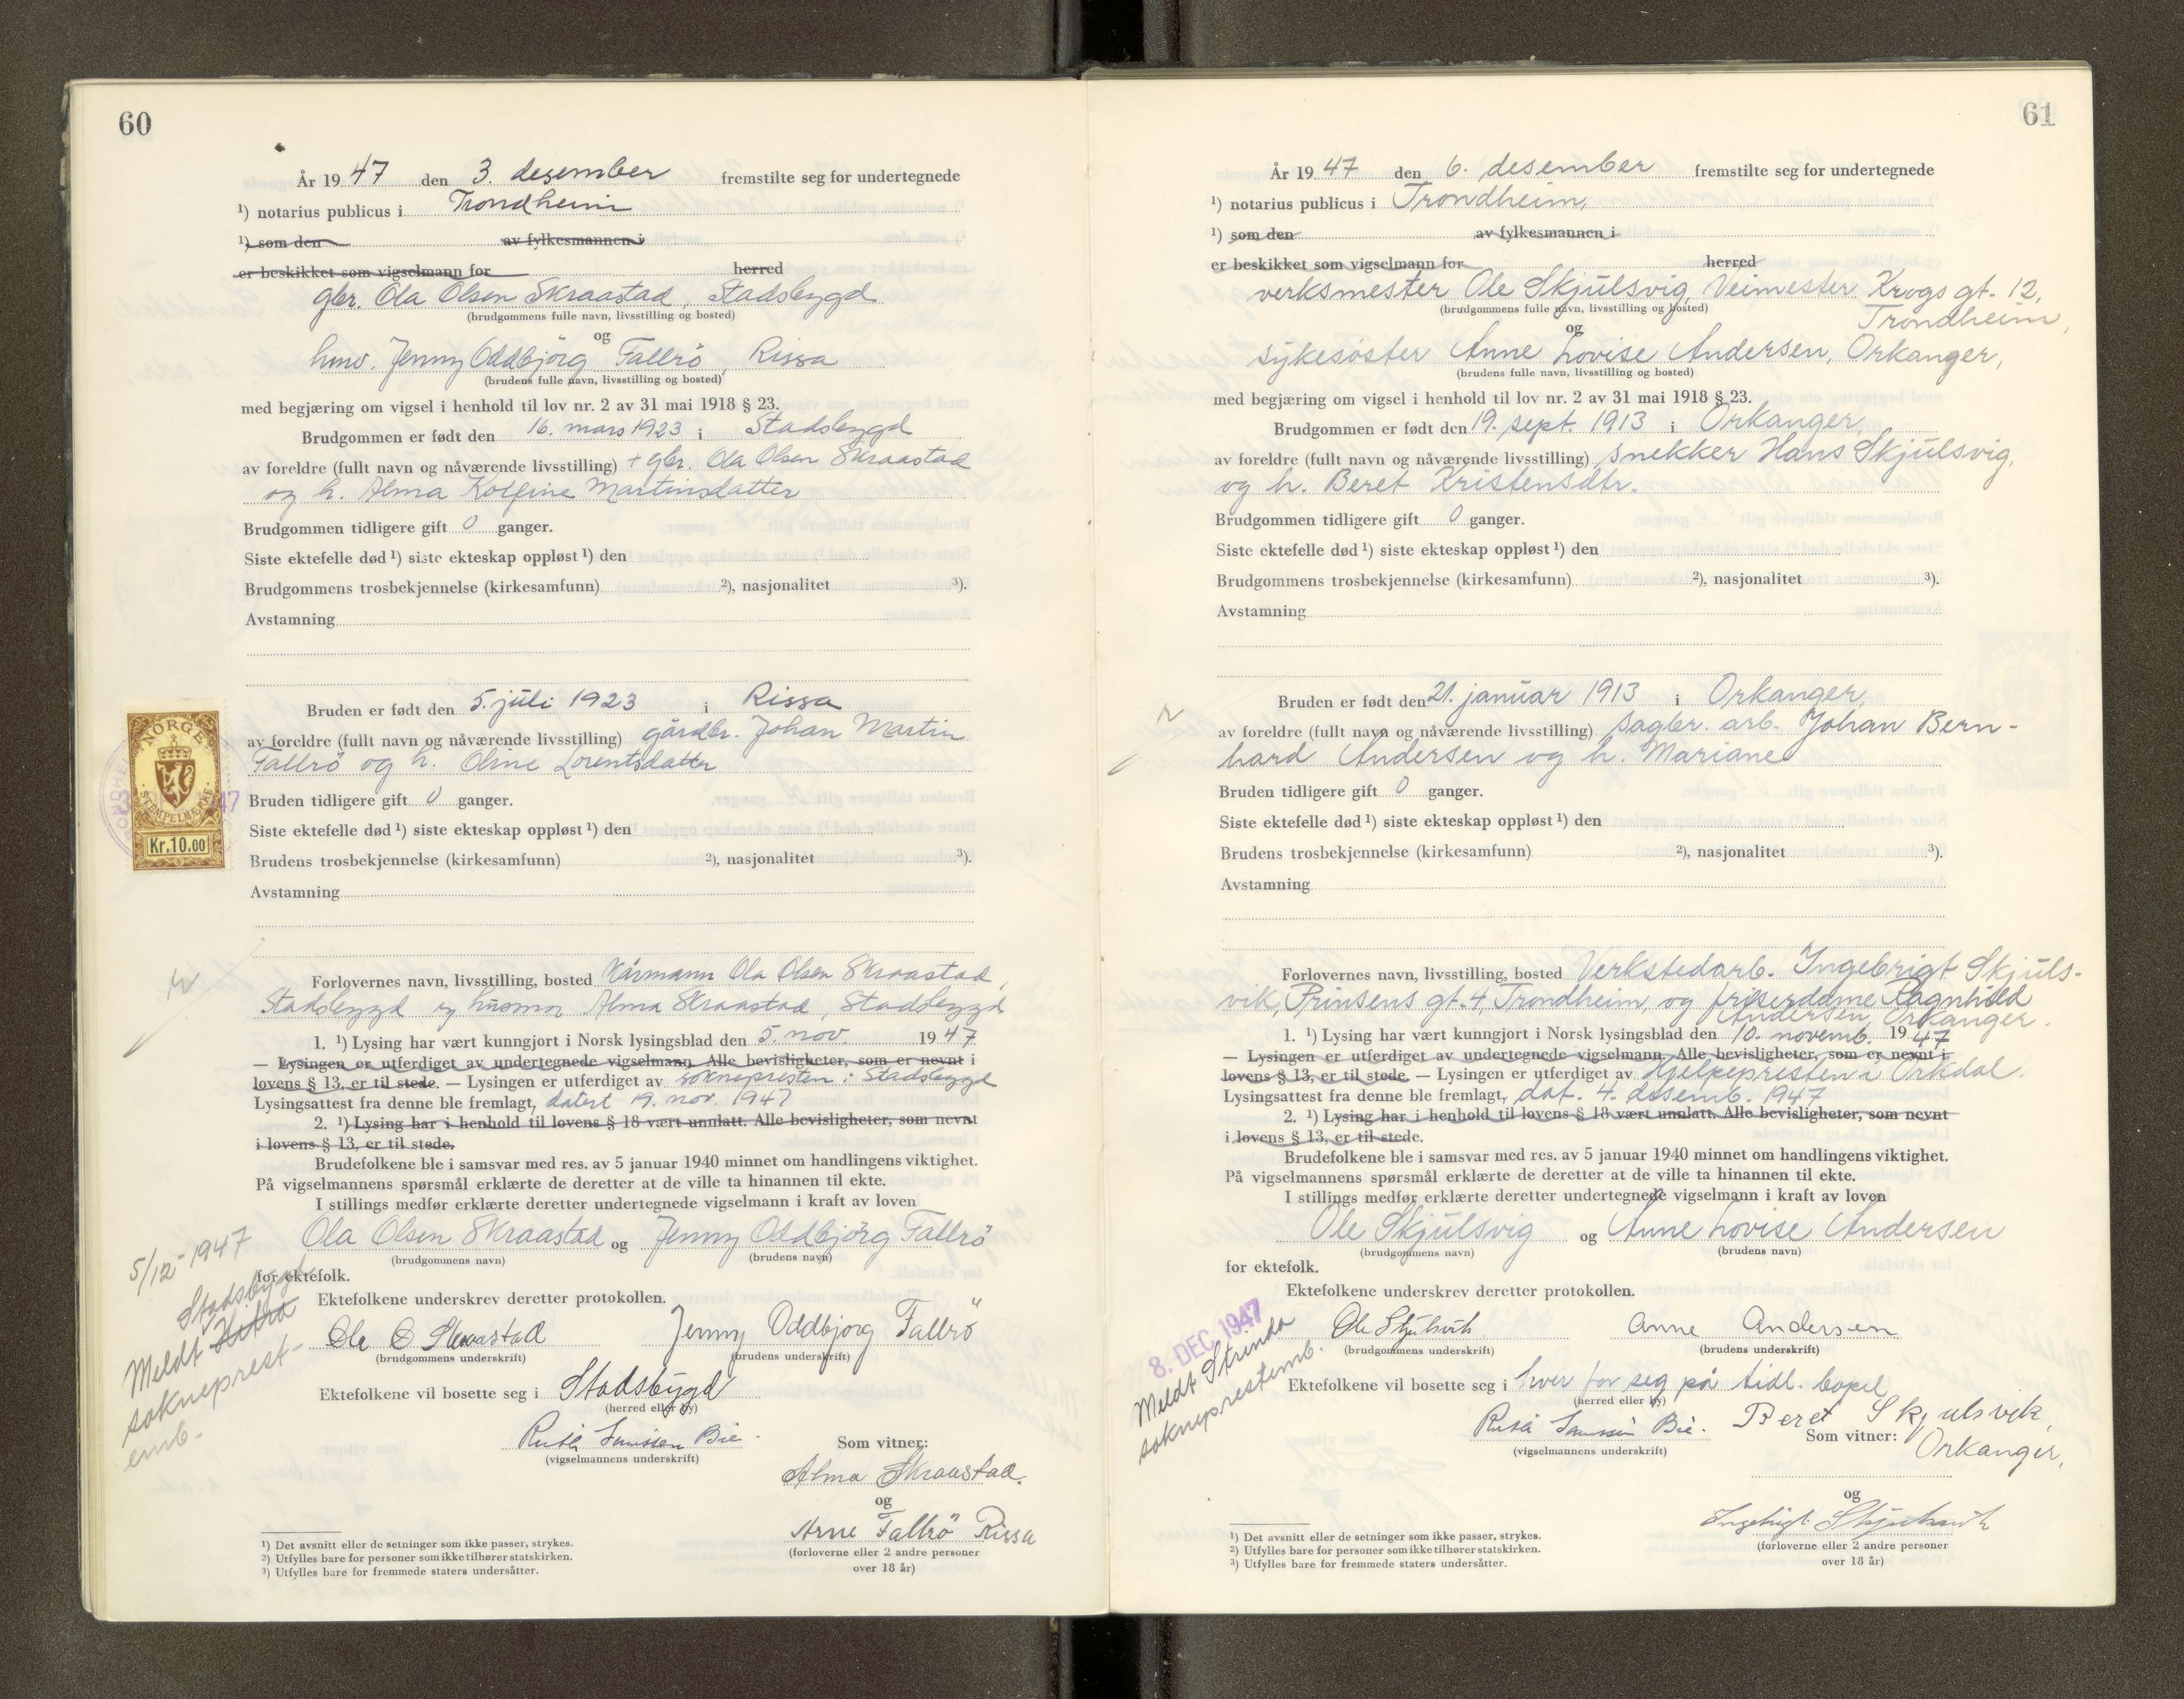 60
År 19 47 den 3. desember fremstilte seg for undertegnede
¹) notarius publicus i Trondheim
¹) som den av fylkesmannen i
er beskikket som vigselmann for herred
gbr. Ola Olsen Skraastad, Stadsbygd
(brudgommens fulle navn, livsstilling og bosted)
og
hmv. Jenny Oddbjörg Fallrö, Rissa
(brudens fulle navn, livsstilling og bosted)
med begjæring om vigsel i henhold til lov nr. 2 av 31 mai 1918 § 23.
Brudgommen er født den 16. mars 1923 i Stadsbygd
av foreldre (fullt navn og nåværende livsstilling) + gbr. Ola Olsen Skraastad
og h. Alma Kolfine Martinsdatter
Brudgommen tidligere gift 0 ganger.
Siste ektefelle død ¹) siste ekteskap oppløst ¹) den
Brudgommens trosbekjennelse (kirkesamfunn) ²), nasjonalitet ³).
Avstamning
Bruden er født den 5. juli 1923 i Rissa
av foreldre (fullt navn og nåværende livsstilling) gårdbr. Johan Martin
Fallrö og h. Oline Lorentsdatter
NORGE
STEMPELMÆRKE
Kr.10.00
Bruden tidligere gift 0 ganger.
Siste ektefelle død ¹) siste ekteskap oppløst ¹) den
Brudens trosbekjennelse (kirkesamfunn) ²), nasjonalitet ³).
Avstamning
Forlovernes navn, livsstilling, bosted Kårmann Ola Olsen Skraastad,
Stadsbygd og husmor Alma Skraastad, Stadsbygd
1. ¹) Lysing har vært kunngjort i Norsk lysingsblad den 5. nov. 1947
— Lysingen er utferdiget av undertegnede vigselmann. Alle bevisligheter, som er nevnt i
lovens § 13, er til stede. — Lysingen er utferdiget av soknepresten i Stadsbygd
Lysingsattest fra denne ble fremlagt, datert 19. nov. 1947
2. ¹) Lysing har i henhold til lovens § 18 vært unnlatt. Alle bevisligheter, som nevnt
i lovens § 13, er til stede.
Brudefolkene ble i samsvar med res. av 5 januar 1940 minnet om handlingens viktighet.
På vigselmannens spørsmål erklærte de deretter at de ville ta hinannen til ekte.
I stillings medfør erklærte deretter undertegnede vigselmann i kraft av loven
Ola Olsen Skraastad og Jenny Oddbjörg Fallrö
(brudgommens navn) (brudens navn)
for ektefolk.
5/12-1947
Stadsbygd
Meldt Hitra
sokneprest-
emb.
Ektefolkene underskrev deretter protokollen.
Ole O Skraastad Jenny Oddbjörg Fallrö
(brudgommens underskrift) (brudens underskrift)
Ektefolkene vil bosette seg i Stadsbygd
(herred eller by)
(vigselmannens underskrift)
Som vitner:
Alma Skraastad.
og
Arne Fallrö Rissa
(forloverne eller 2 andre personer
over 18 år)
¹) Det avsnitt eller de setninger som ikke passer, strykes.
²) Utfylles bare for personer som ikke tilhører statskirken.
³) Utfylles bare for fremmede staters undersåtter.
61
År 19 47 den 6. desember fremstilte seg for undertegnede
¹) notarius publicus i Trondheim,
¹) som den av fylkesmannen i
er beskikket som vigselmann for herred
verksmester Ole Skjulsvig, Veimester Krogs gt. 12,
Trondheim,
(brudgommens fulle navn, livsstilling og bosted)
og
sykesøster Anne Lovise Andersen, Orkanger,
(brudens fulle navn, livsstilling og bosted)
med begjæring om vigsel i henhold til lov nr. 2 av 31 mai 1918 § 23.
Brudgommen er født den 19. sept. 1913 i Orkanger,
av foreldre (fullt navn og nåværende livsstilling) snekker Hans Skjulsvig,
og h. Beret Kristensdtr.
Brudgommen tidligere gift 0 ganger.
Siste ektefelle død ¹) siste ekteskap oppløst ¹) den
Brudgommens trosbekjennelse (kirkesamfunn) ²), nasjonalitet ³).
Avstamning
Bruden er født den 21. januar 1913 i Orkanger,
av foreldre (fullt navn og nåværende livsstilling) sagbr. arb. Johan Bern-
hard Andersen og h. Mariane
Bruden tidligere gift 0 ganger.
Siste ektefelle død ¹) siste ekteskap oppløst ¹) den
Brudens trosbekjennelse (kirkesamfunn) ²), nasjonalitet ³).
Avstamning
Forlovernes navn, livsstilling, bosted Verkstedarb. Ingebrigt Skjuls-
vik, Prinsens gt. 4, Trondheim, og friserdame Ragnhild
Andersen, Orkanger.
1. ¹) Lysing har vært kunngjort i Norsk lysingsblad den 10. novemb. 1947
— Lysingen er utferdiget av undertegnede vigselmann. Alle bevisligheter, som er nevnt i
lovens § 13, er til stede. — Lysingen er utferdiget av Hjelpepresten i Orkdal.
Lysingsattest fra denne ble fremlagt, dat. 4. desemb. 1947
2. ¹) Lysing har i henhold til lovens § 18 vært unnlatt. Alle bevisligheter, som nevnt
i lovens § 13, er til stede.
Brudefolkene ble i samsvar med res. av 5 januar 1940 minnet om handlingens viktighet.
På vigselmannens spørsmål erklærte de deretter at de ville ta hinannen til ekte.
I stillings medfør erklærte deretter undertegnede vigselmann i kraft av loven
Ole Skjulsvig og Anne Lovise Andersen
(brudgommens navn) (brudens navn)
for ektefolk.
8. DEC. 1947
Meldt Strinda
sokneprestemb.
Ektefolkene underskrev deretter protokollen.
Ole Skjulsvik Anne Andersen
(brudgommens underskrift) (brudens underskrift)
Ektefolkene vil bosette seg i hver for seg på tidl. bopel
(herred eller by)
(vigselmannens underskrift)
Beret Skjulsvik,
Som vitner:
Orkanger,
og
Ingebrigt Skjulsvik
(forloverne eller 2 andre personer
over 18 år)
¹) Det avsnitt eller de setninger som ikke passer, strykes.
²) Utfylles bare for personer som ikke tilhører statskirken.
³) Utfylles bare for fremmede staters undersåtter.